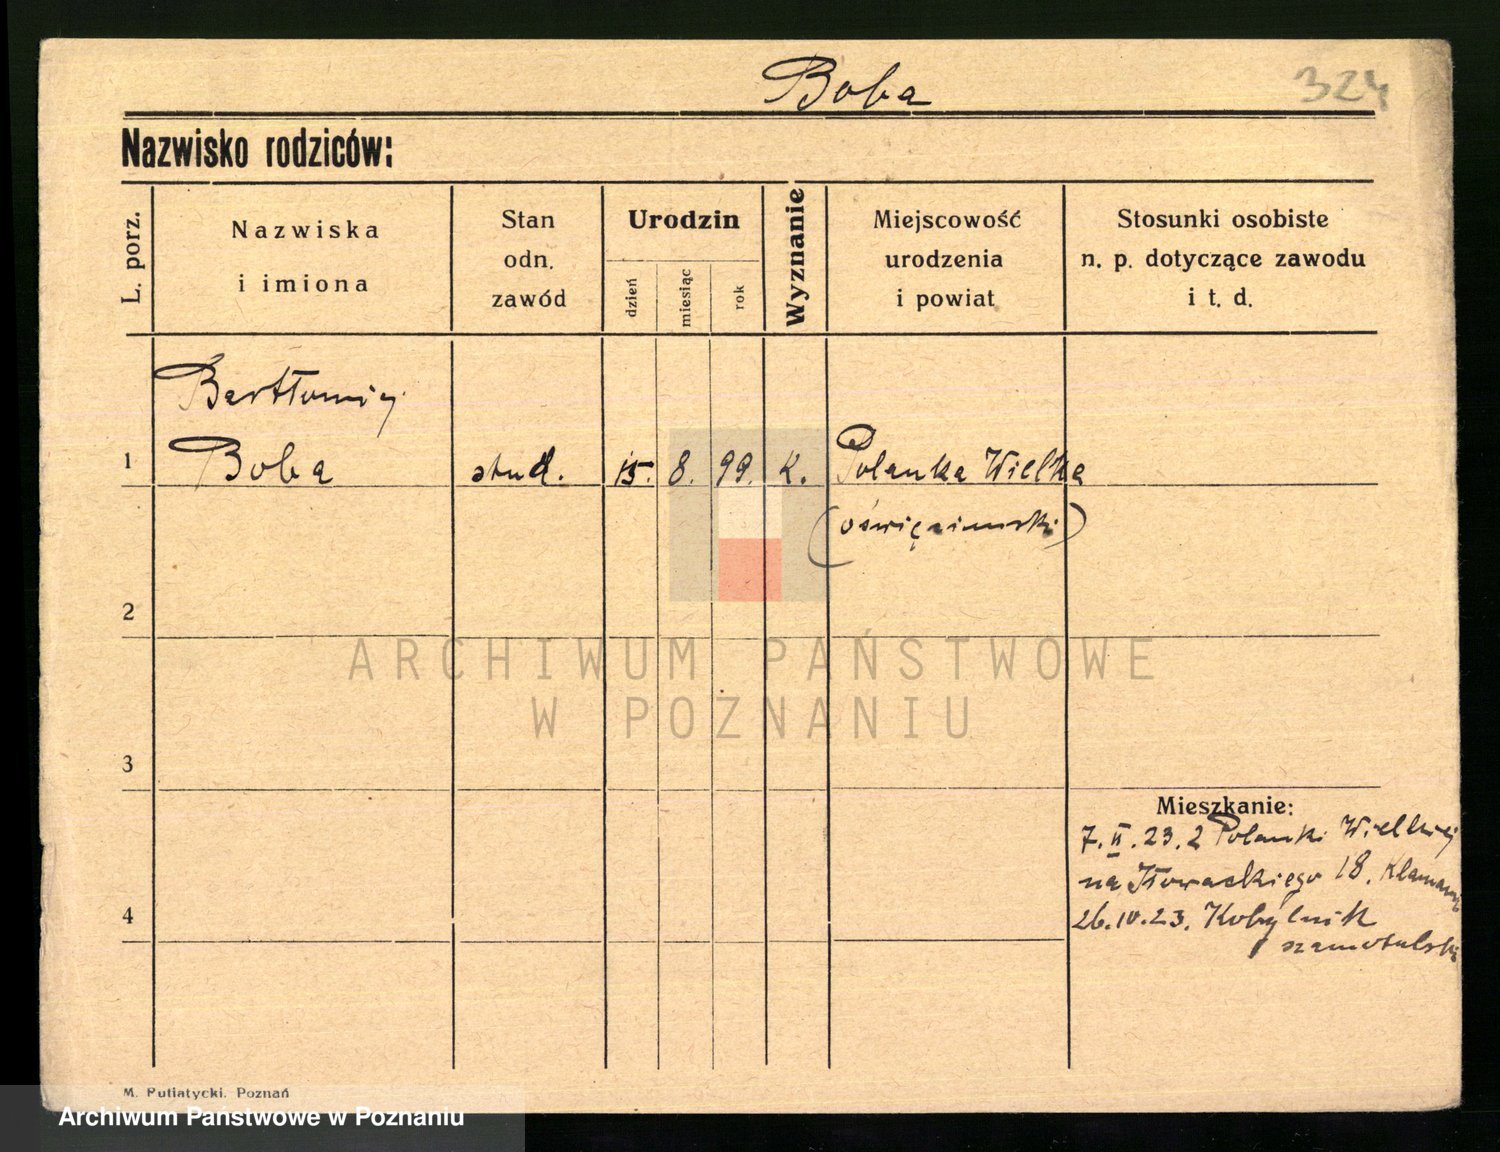 Boba 324
Nazwisko rodziców:
L. porz.
Nazwiska
i imiona
Stan
odn.
zawód
Urodzin
dzień
miesiąc
rok
Wyznanie
Miejscowość
urodzenia
i powiat
Stosunki osobiste
n. p. dotyczące zawodu
i t. d.
Bartłomiej
1 Boba stud. 15. 8. 99. K. Polanka Wielka
(oświęcimski)
2
ARCHIWUM PAŃSTWOWE
W POZNANIU
3
Mieszkanie:
7.II.23. z Polanki Wielkiej
na Słowackiego 18.
4 26.IV.23. Kobylnik
szamotulski
M. Putiatycki. Poznań
Archiwum Państwowe w Poznaniu